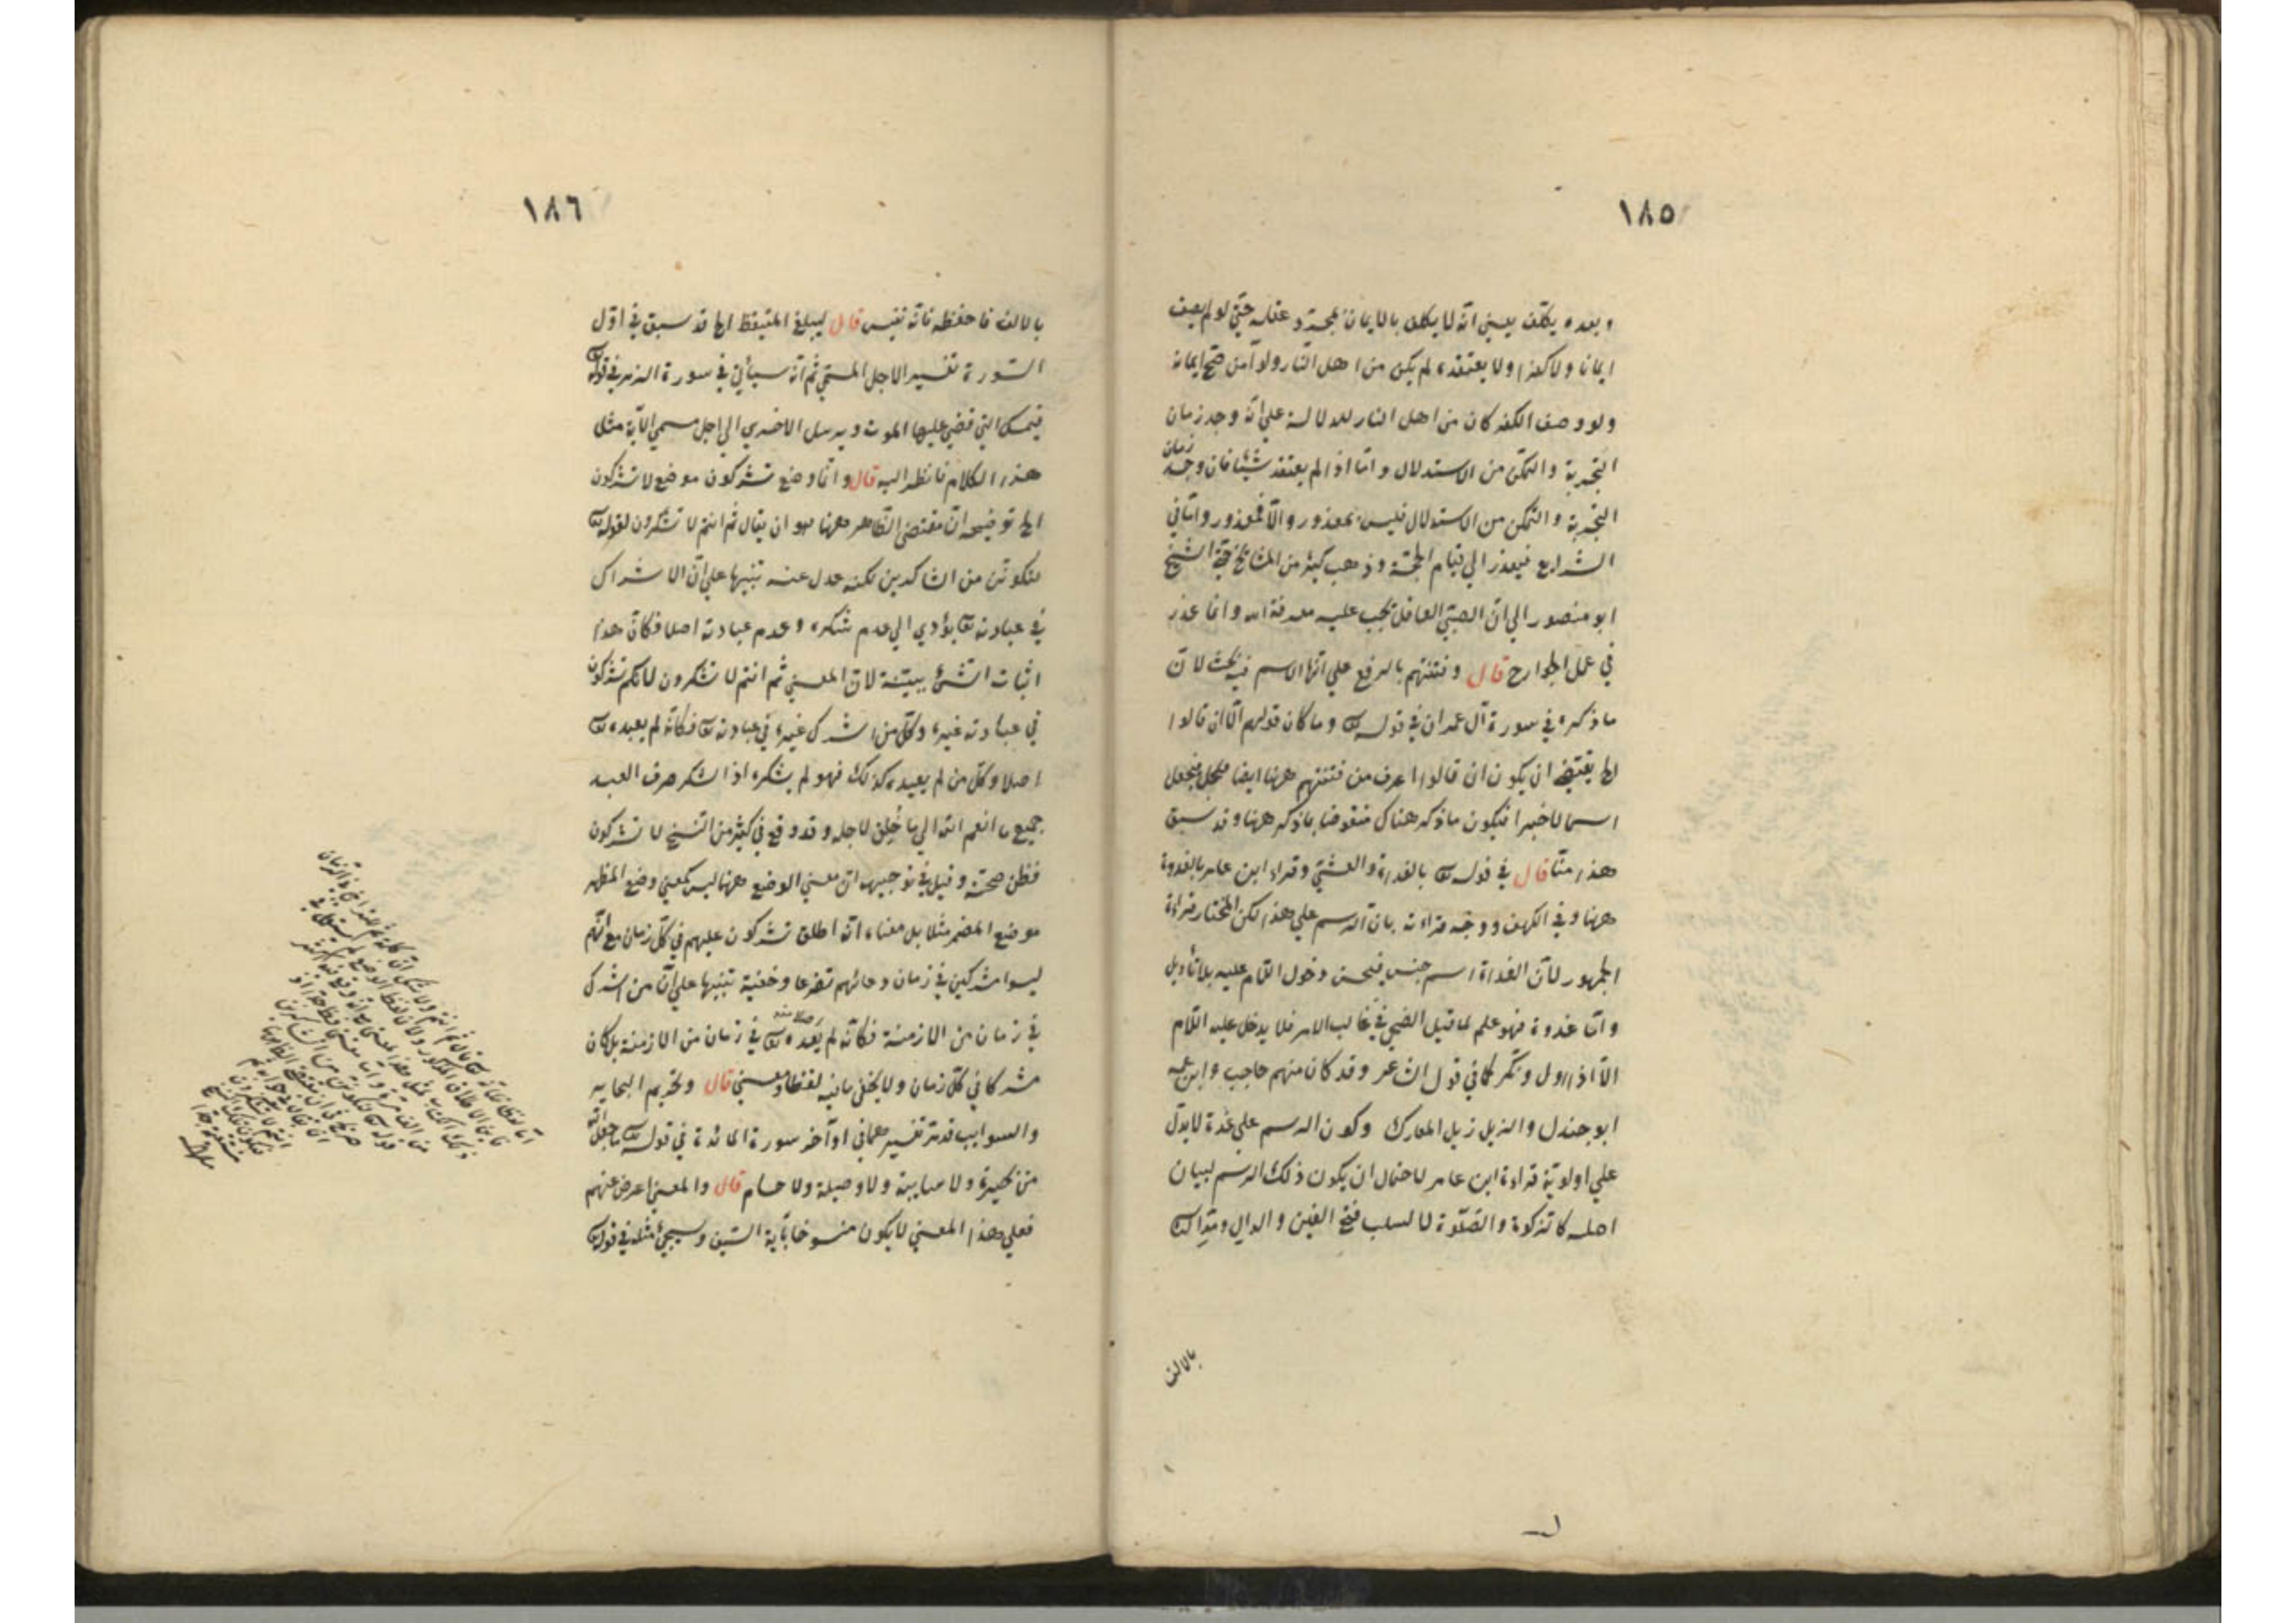 ١٨٥
وبعده يكلف يعني انه لا يكلف بالايمان بمجرد عقله حتي لو لم يصف
ايمانا ولا كفرا ولا يعتقده لم يكن من اهل النار ولو آمن صح ايمانه
ولو وصف الكفر كان من اهل النار للدلالة علي انه وجد زمان
التجربة والتمكن من الاستدلال واما اذا لم يعتقد شيئا فان وجد زمان
التجربة والتمكن من الاستدلال فليس بمعذور والا فمعذور واما في
الشرايع فيعذر الي قيام الحجة وذهب كثير من المشايخ حتي الشيخ
ابو منصور الي ان الصبي العاقل يجب عليه معرفة الله وانما عذر
في عمل الجوارح قال وفتنتهم بالرفع علي انها الاسم فيه بحث لان
ما ذكره في سورة آل عمران في قوله تع وما كان قولهم الا ان قالوا
الخ يقتضي ان يكون ان قالوا اعرف من فتنتهم ههنا ايضا فيجعل
اسما لا خبرا فيكون ما ذكر هناك منقوضا بما ذكر ههنا وقد سبق
هذا منا قال في قوله تع بالغداة والعشي وقراء ابن عامر بالغدوة
ههنا وفي الكهف ووجه قراءته بان الرسم علي هذا لكن المختار قراءة
الجمهور لان الغداة اسم جنس فيحسن دخول اللام عليه بلا تأويل
واما غدوة فهو علم لما قبل الضحي في غالب الامر فلا يدخل عليه اللام
الا اذا اول وينكر كما في قول الشاعر وقد كان منهم حاجب وابن عمه
ابو جندل والزيد زيد المعارك وكون الرسم علي غدة لا يدل
علي اولوية قراءة ابن عامر لاحتمال ان يكون ذلك الرسم لبيان
اصله كالزكوة والصلوة لا لسلب فتح الغين والدال
بالالف
١٨٦
بالالف فاحفظه فانه نفيس قال ليبلغ المتيقظ الخ قد سبق في اول
السورة تفسير الاجل المسمي ثم انه سيأتي في سورة الزمر في قوله تع
فيمسك التي قضي عليها الموت ويرسل الاخري الي اجل مسمي الآية مثل
هذا الكلام فانظر اليه قال وانما وضع تشركون موضع لا تشكرون
الخ توضيحه ان مقتضي الظاهر ههنا هو ان يقال ثم انتم لا تشكرون لقوله تع
لنكونن من الشاكرين لكنه عدل عنه تنبيها علي ان الاشراك
في عبادته تع يؤدي الي عدم شكره وعدم عبادته اصلا فكان هذا
اثبات الشئ ببينة لان المعني ثم انتم لا تشكرون لانكم تشركون
في عبادته غيره وكل من اشرك غيره في عبادته تع فكأنه لم يعبده تع
اصلا وكل من لم يعبده كذلك فهو لم يشكره اذ الشكر صرف العبد
جميع ما انعم الله الي ما خلق لاجله وقد وقع في كثير من النسخ لا تشركون
فظن صحته وقيل في توجيهه ان معني الوضع ههنا ليس كمعني وضع المظهر
موضع المضمر مثلا بل معناه انه اطلق تشركون عليهم في كل زمان مع انهم
ليسوا مشركين في زمان دعائهم تضرعا وخفية تنبيها علي ان من اشرك
في زمان من الازمنة فكأنه لم يعبده تع في زمان من الازمنة بل كان
مشركا في كل زمان ولا يخفي ما فيه لفظا ومعني قال وتحريم البحاير
والسوايب قد مر تفسيرهما في اوآخر سورة المائدة في قوله تع ما جعل الله
من بحيرة ولا سايبة ولا وصيلة ولا حام قال والمعني اعرض عنهم
فعلي هذا المعني لا يكون منسوخا بآية السيف وسيجئ مثله في قوله تع